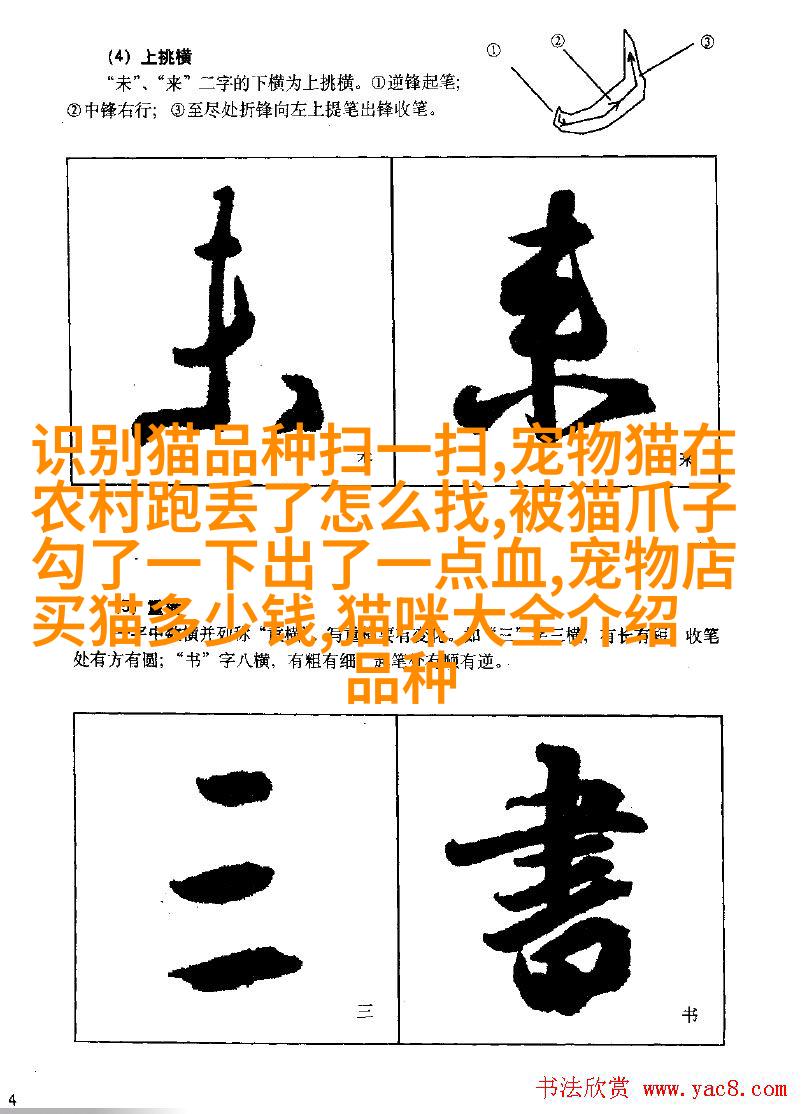 (4) 上挑横
① ② ③
“未”、“来”二字的下横为上挑横。①逆锋起笔；
②中锋右行；③至尽处折锋向左上提笔出锋收笔。
未 来
识别猫品种扫一扫,宠物猫在
农村跑丢了怎么找,被猫爪子
勾了一下出了一点血,宠物店
买猫多少钱,猫咪大全介绍
品种
收笔
处有方有圆；“书”字八横，有粗有细，起笔处有顺有逆。
三 書
三 书
4
书法欣赏 www.yac8.com